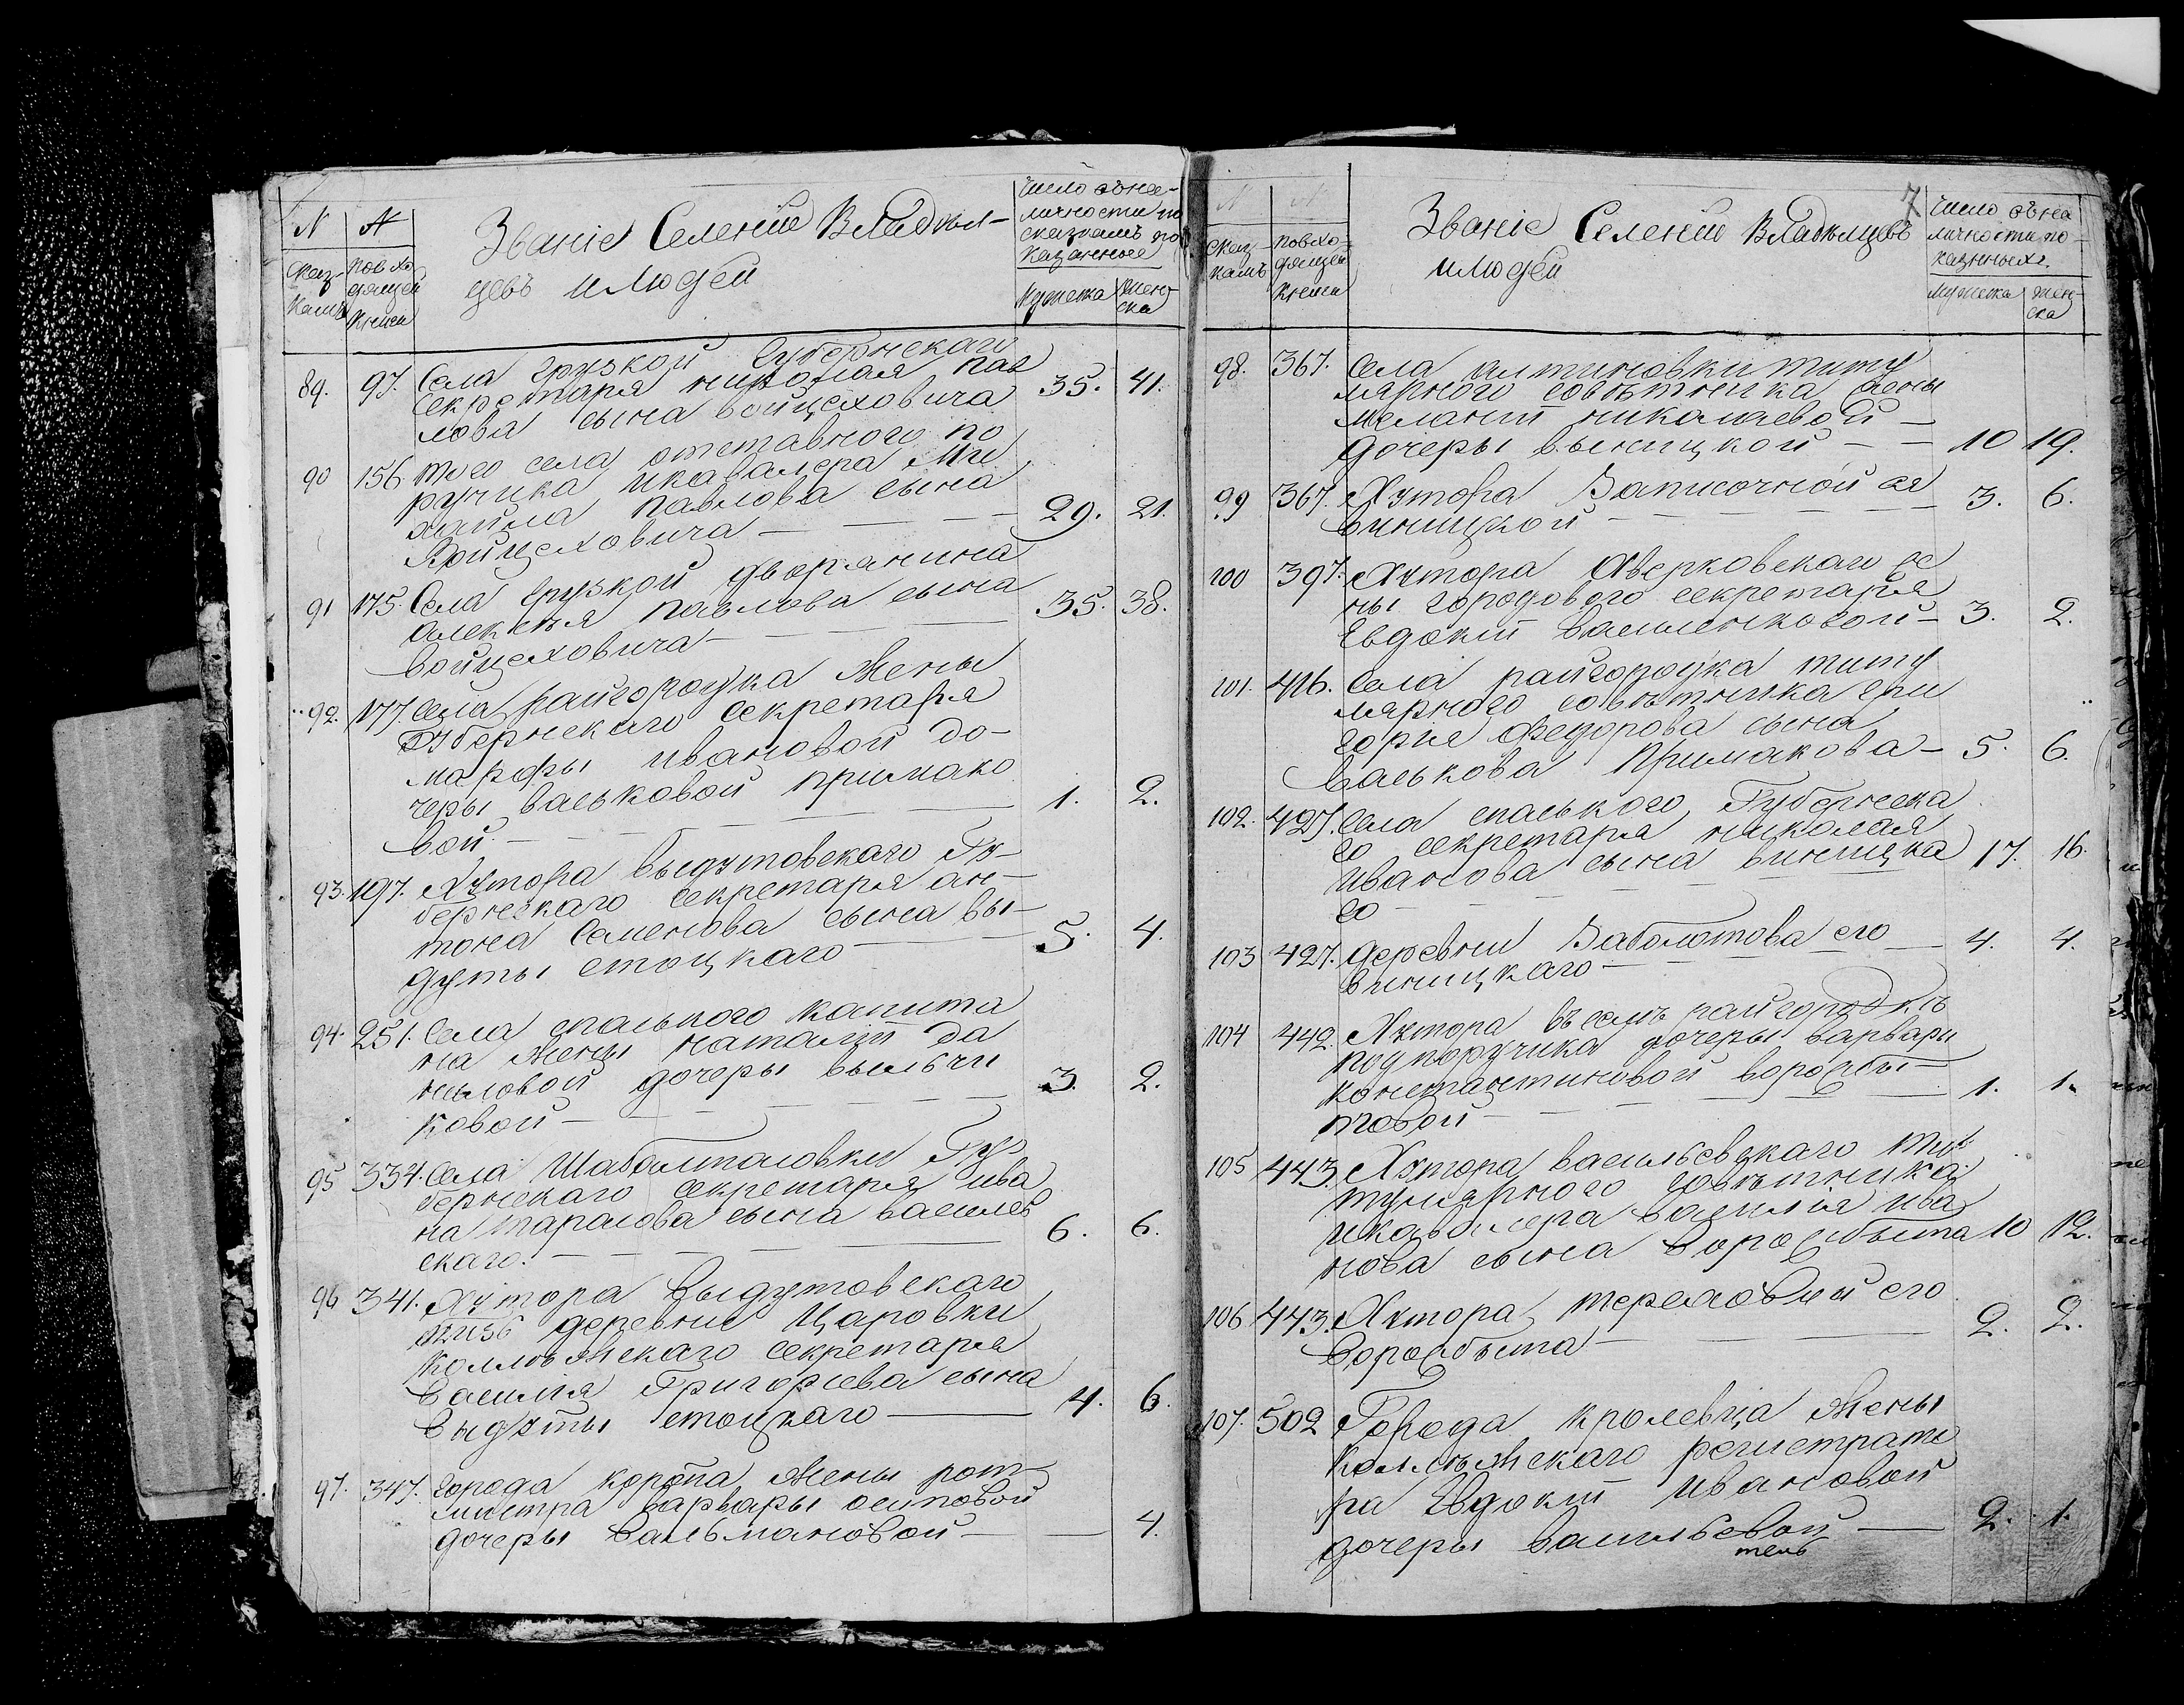 N
N
Сказ-
камъ
повхо
дящей
книги
Званіе Селеніи Владѣл-
цевъ и людей
Число внее-
личности по
сказкамъ по
казанные
Мужеска
Жен-
ска
89. 97. Села Грузкой Губернскаго
Секретаря Николая Пав
лова сына Войцеховича 35. 41.
90 156. того села отставного по
ручика и кавалера Ми
хайла Павлова сына 29. 21.
Войцеховича
91 175. Села Грузкой дворянина
Алексѣя Павлова сына 35. 38.
Войцеховича
92. 177. Села Райгородка Жены
Губернскаго Секретаря
Марфы Ивановой до-
черы Васьковой Примако 1. 2.
вой
93. 197. Хутора Выдутовскаго Гу-
бернскаго Секретаря Ан-
тона Семенова сына Вы- 5. 4.
дуты Стоцкаго
94. 251. Села Спаського Капита
на Жены Наталіи Да
ниловой дочеры 3. 2.
ковой
95 334. Села Шабалтасовки Гу
бернскаго Секретаря Ива
на Тарасова сына Василев 6. 6.
скаго.
96 341. Хутора Выдутовскаго
деревни Царовки
Коллежскаго секретаря
Василія Григорьева сына 4. 6.
Выдуты Стоцкаго
97. 347. города Коропа Жены рот-
мистра Варвары Осиповой
дочеры Вальмановой 4.
7
N
N
Сказ-
камъ
повхо-
дящей
книги
Званіе Селеніи Владѣлцевъ
и людей
Число внее
личности по-
казнныхъ.
Мужеска
Жен-
ска
98. 367. Села Алтиновки титу
лярного совѣтника жены
Меланіи Николаевой
дочеры Виницкой 10 19.
99 367. Хутора Записочной ея 3. 6.
Виницкой
100 397. Хутора Аверковскаго же
ны городового секретаря
Евдокіи Василенковой 3. 2.
101. 416. Села Райгородка титу
лярного совѣтника Гри
горія Федорова сына
Васькова Примакова 5. 6.
102. 427. Села Спаського Губернска
го секретаря Николая
Иванова сына Виницка 17. 16.
го
103 427. деревни Заболотова его 4. 4.
Виницкаго
104 442. Хутора въ селѣ Райгородкѣ
подпоручика дочеры Варвары
Константиновой Ворожби- 1. 1.
товой
105 443. Хутора Васильевскаго ти
тулярного совѣтника
и кавалера Василія Ива
нова сына Ворожбыта 10 12.
106 443. Хутора его 2. 2.
Ворожбыта
107. 502 Города Кролевца Жены
Коллежскаго регистрато
ра Евдокіи Ивановой
дочеры Васильевой 2. 1.